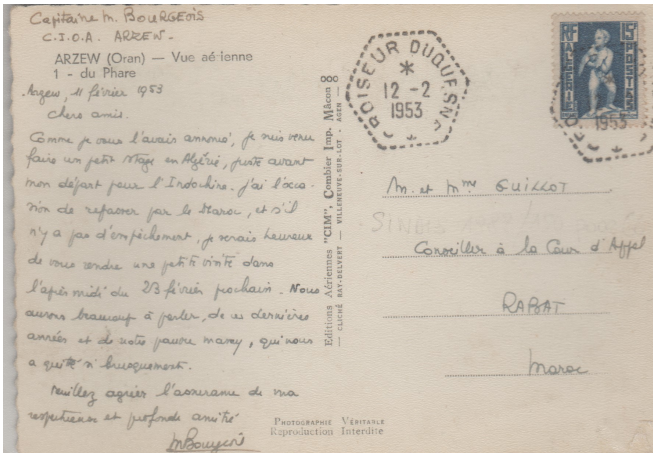 Capitaine M. BOURGEOIS
C.I.O.A. ARZEW -
ARZEW (Oran) — Vue aérienne
1 - du Phare
Arzew, 11 février 1953
chers amis.
Comme je vous l'avais annoncé, je suis venu
faire un petit stage en Algérie, juste avant
mon départ pour l'Indochine. j'ai l'occa-
sion de repasser par le Maroc, et s'il
n'y a pas d'empêchement, je serais heureux
de vous rendre une petite visite dans
l'après midi du 23 février prochain. Nous
aurons beaucoup à parler, de ces dernières
années et de notre pauvre, qui nous
a quitté si brusquement.
Veuillez agréer l'assurance de ma
respectueuse et profonde amitié
MBourgeois
Editions Aériennes "CIM", Combier Imp. Mâcon
— CLICHÉ RAY-DELVERT — VILLENEUVE-SUR-LOT - AGEN —
PHOTOGRAPHIE VÉRITABLE
Reproduction Interdite
CROISEUR DUQUESNE
12 -2
1953
RF
15F
ALGERIE
POSTES
1953
M. et Mme GUILLOT
Conseiller à la Cour d'Appel
RABAT
Maroc